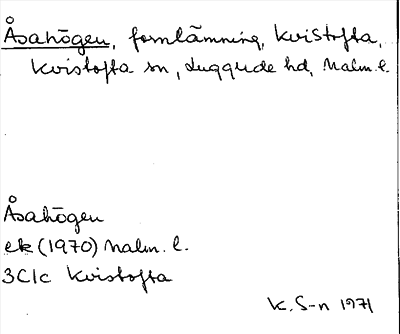 Åsahögen, fornlämning, Kvistofta,
Kvistofta sn, Luggude hd, Malm. l.
Åsahögen
ek (1970) Malm. l.
3C1c Kvistofta
K. S-n 1971